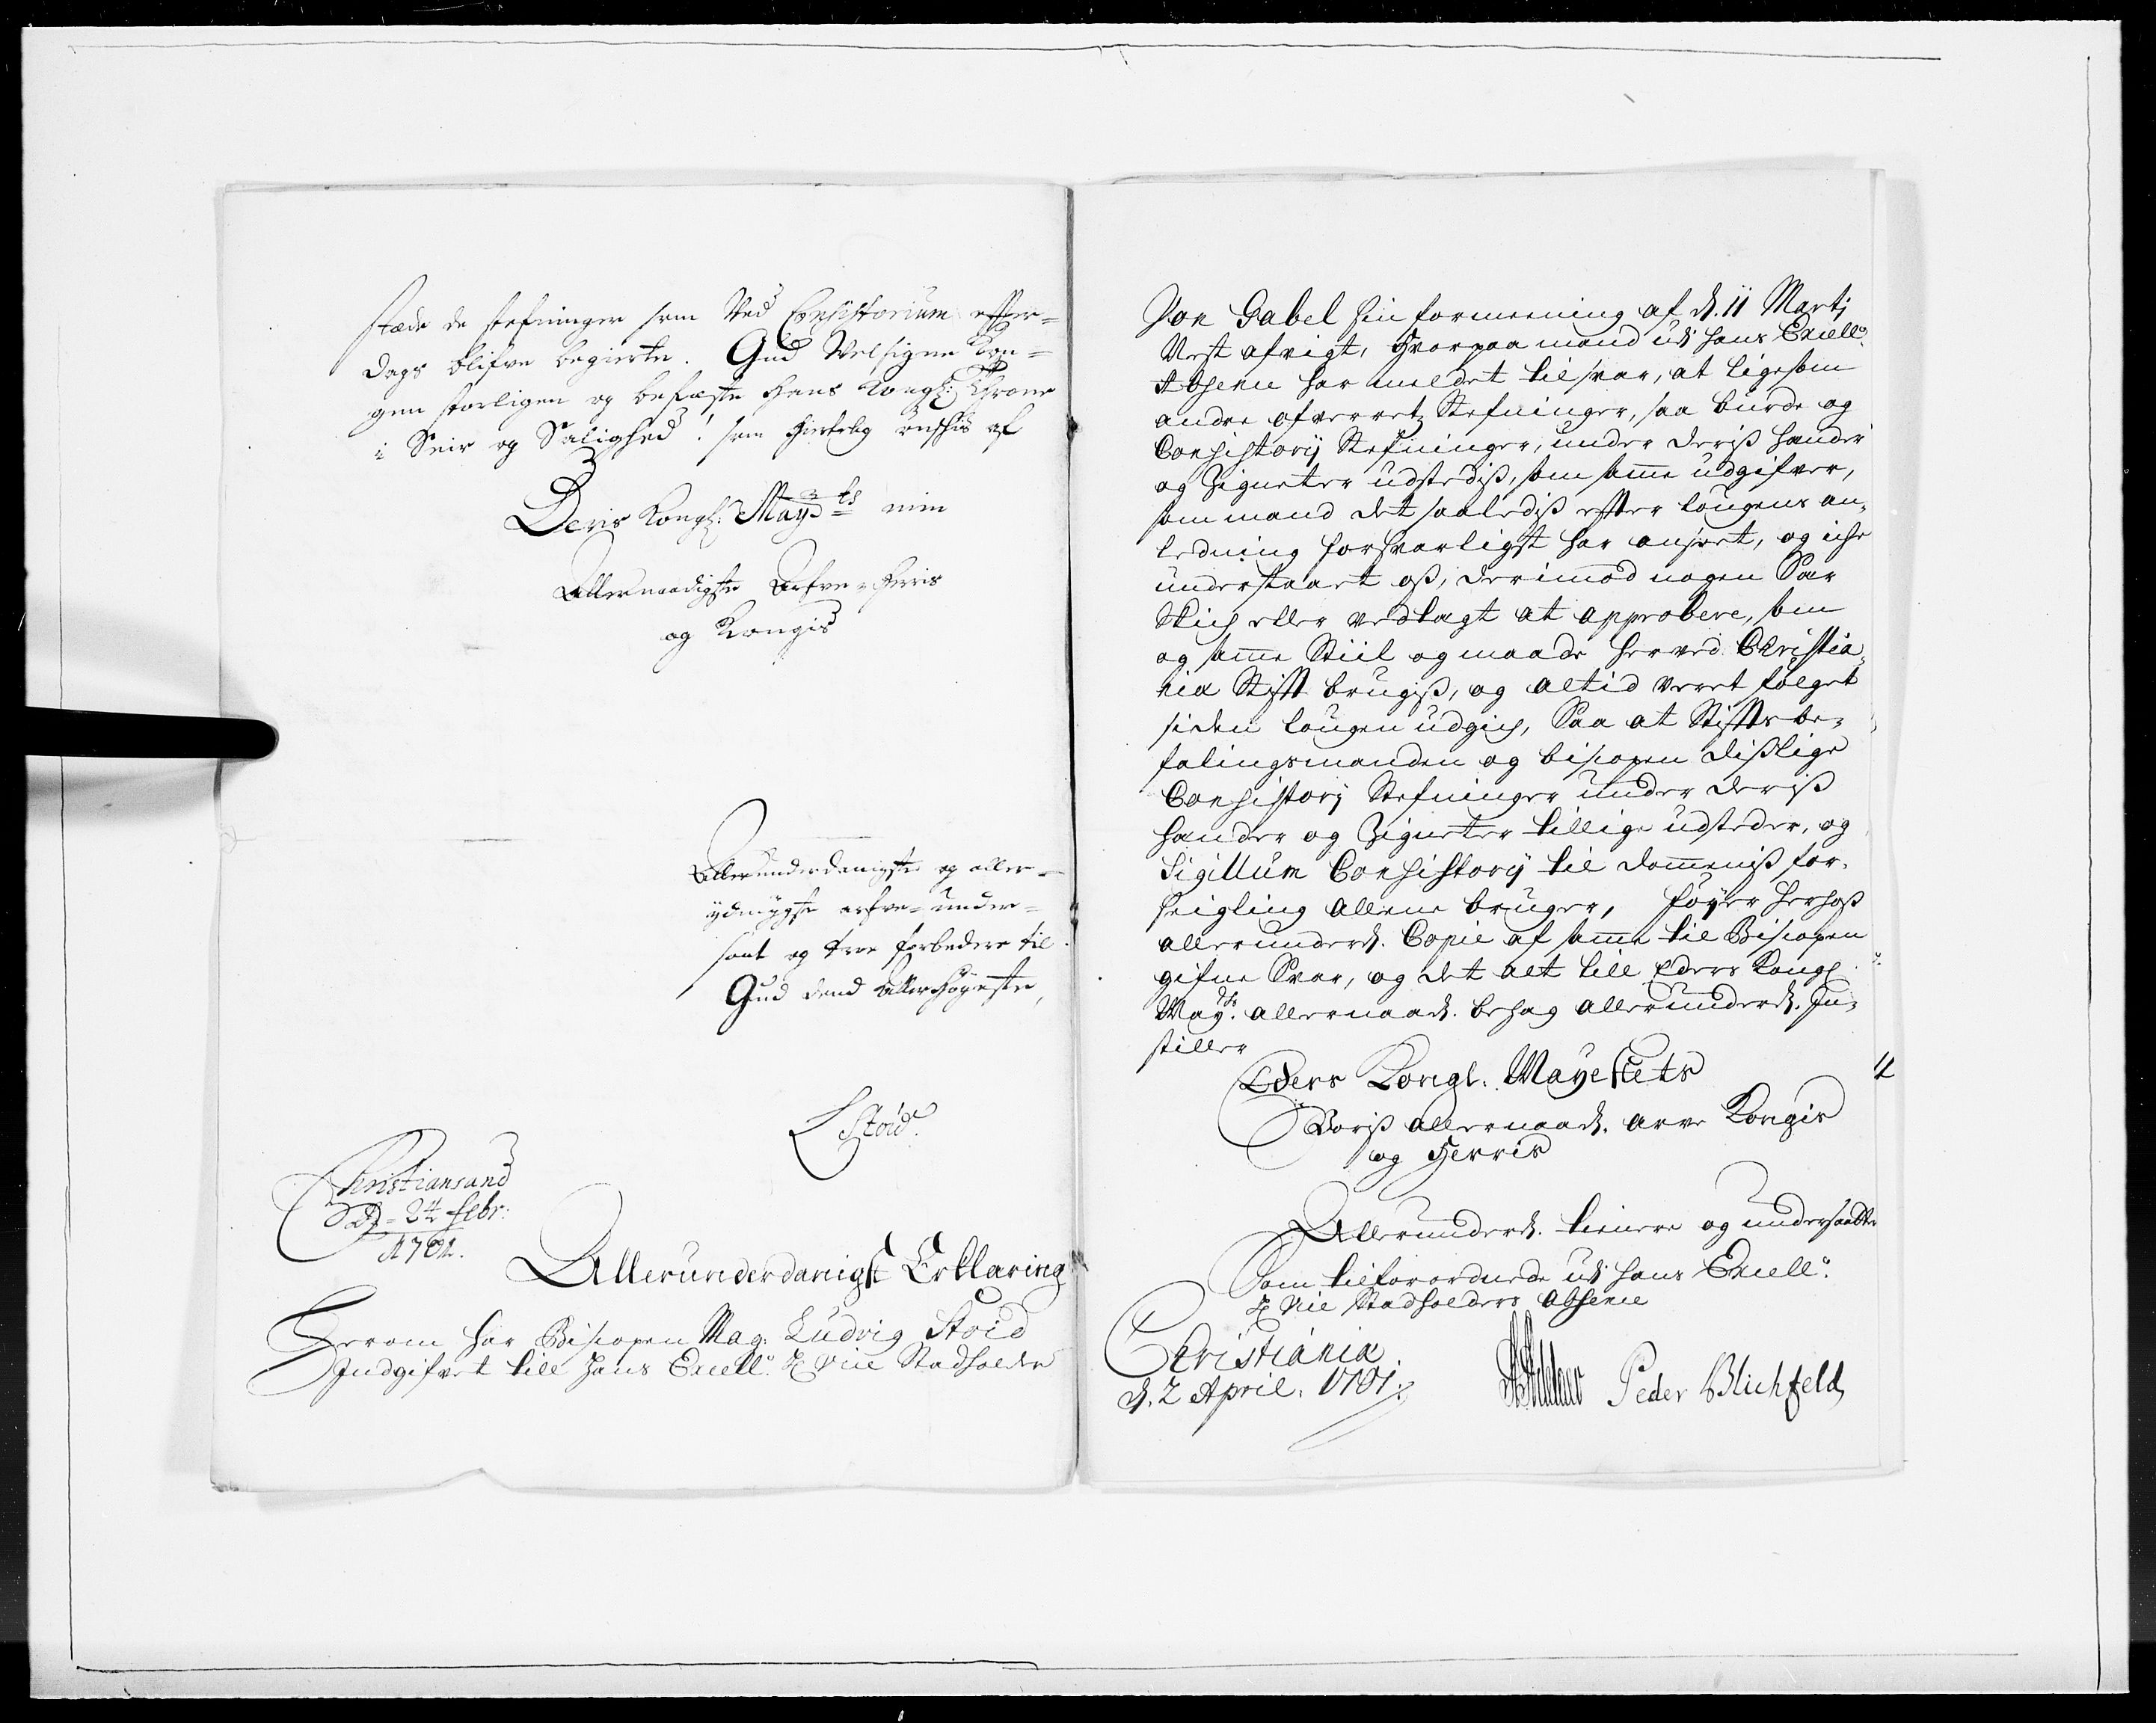 stæde de stefninger som Ved Consistorium effter=
dags blifve begierte. Gud Velsigne Kon=
gen storligen og befæste Hans Kongl: Throne
i Seir og Salighed! som Hiertelig ønskis af
Deris Kongl: May.ts min
Allernaadigste Arfve-Herris
og Kongis
Allerunderdanigste og aller=
ydmygste arfve-under=
saat og troe forbedere til
Gud dend Allerhøyeste,
L Stoid.
Christiansand
d. 24 febr:
1701.
Allerunderdanigst Erklaring
Herom har Biscopen Mag: Ludvig Stoid
Indgifvet till Hans Excell: H Vice Stadholder
Jon Gabel sin formeening af d. 11 Martj
Nest afvigt, Hvorpaa mand udj Hans Excell:
Absence har meldet til svar, at ligesom
andre ofverretz Stefninger, saa burde og
Consistorij Stefninger, under deriss Hænder
og Zigneter udstediss, som samme udgifver,
som mand det saalediss effter Lougens an=
ledning forsvarligst har anseet, og iche
understaaet oss, derimod nogen Sær
Skich eller vedtagt at approbere, som
og samme Stiil og maade her ved Christia=
nia Stifft brugiss, og altid veret følget
siden Lougen udgich, Saa at Stifftsbe=
falingsmanden og biscopen disslige
Consistorij Stefninger under deriss
Hænder og Zigneter tillige udsteder, og
Sigillum Consistorij til dommeniss for=
seigling allene bruger, føyer herhoss
allerunderd. Copie af samme til Biscopen
gifne Svar, og det alt till Eders Kongl.
May:ts allernaad. behag allerunderd. In=
stiller
Eders Kongl. Mayestets
Voriss allernaad. arve Kongis
og Herris
Allerunderd. tienere og undersaatter
Som tilforordnede udj Hans Excell:
H Vice Stadholders Absence
Christiania
d. 2 April. 1701.
Peder Blichfeld